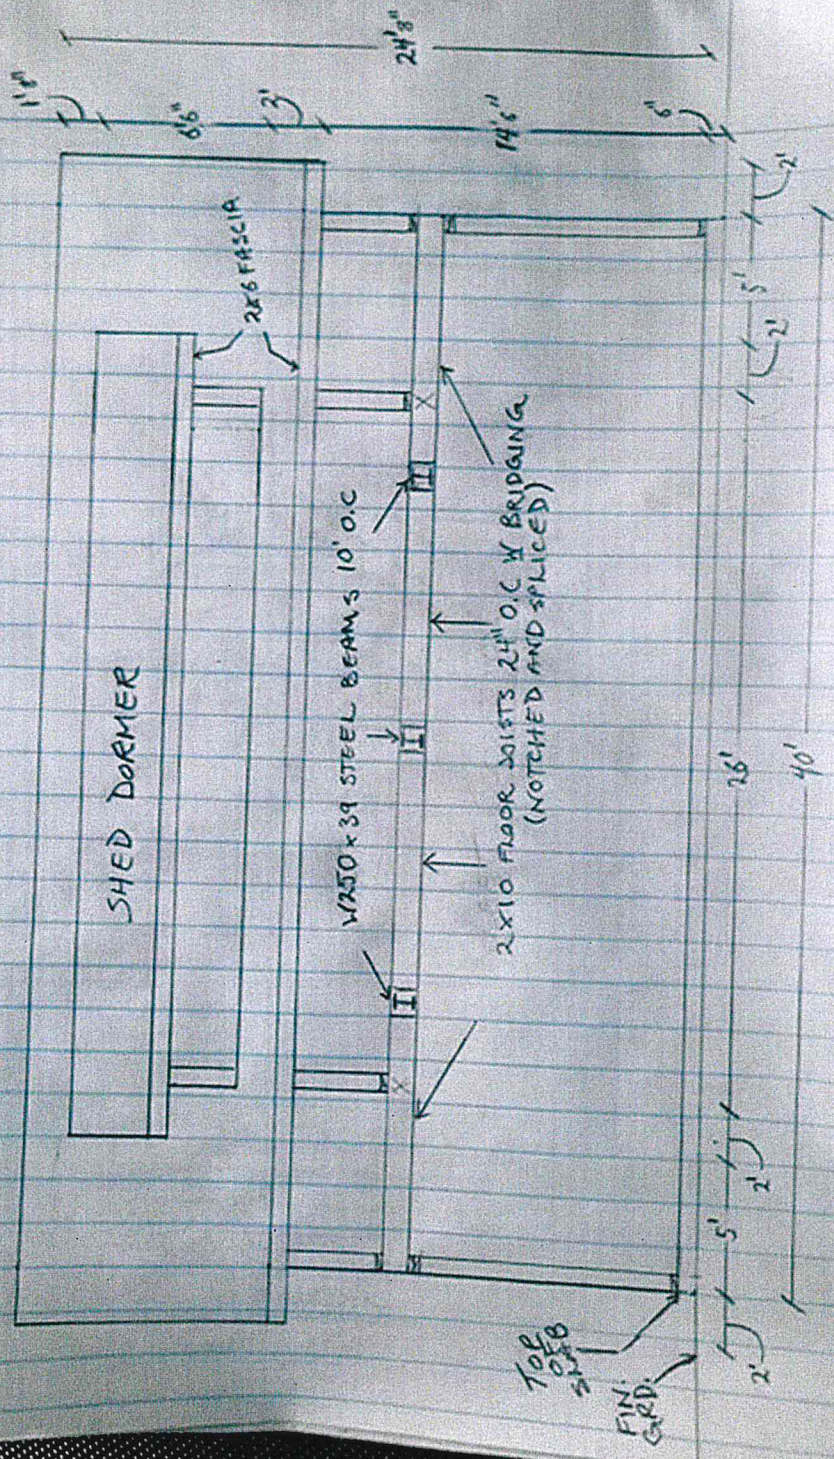 SHED DORMER
2x6 FASCIA
W250 x 39 STEEL BEAMS 10' O.C
2x10 FLOOR JOISTS 24" O.C W BRIDGING
(NOTCHED AND SPLICED)
TOP
OF
SLAB
FIN.
GRD.
1'8"
6'6"
2'
14'6"
6"
24'8"
2'
5'
2'
26'
2'
5'
2'
40'